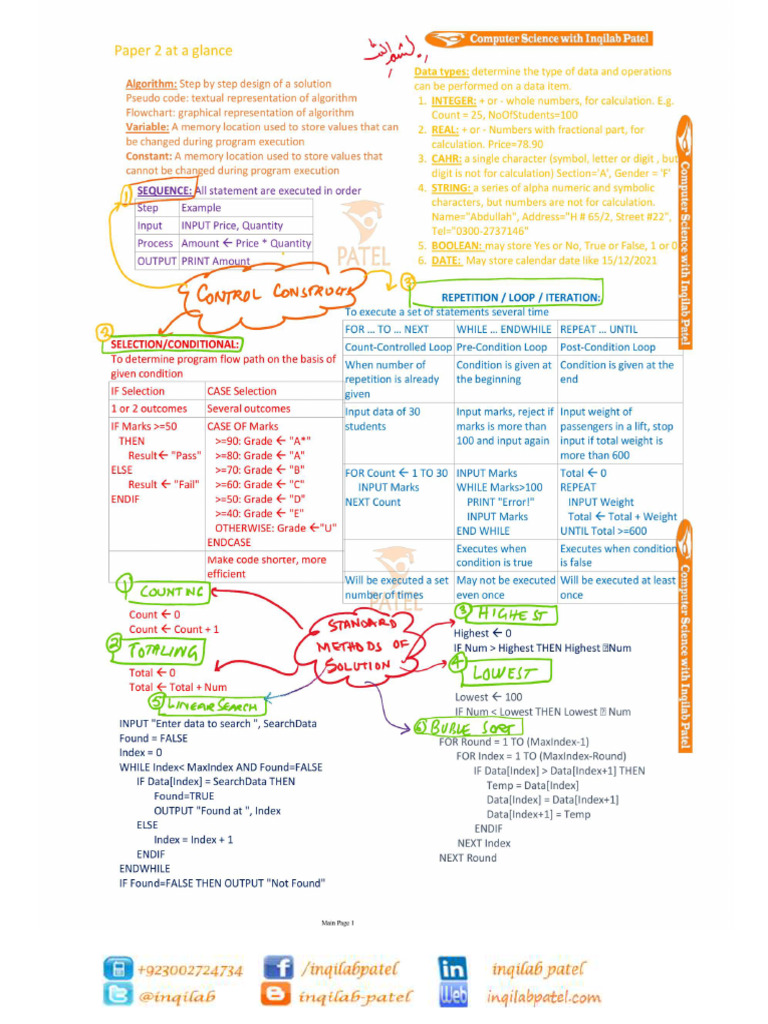 Computer Science with Inqilab Patel
Paper 2 at a glance
Algorithm: Step by step design of a solution
Pseudo code: textual representation of algorithm
Flowchart: graphical representation of algorithm
Variable: A memory location used to store values that can
be changed during program execution
Constant: A memory location used to store values that
cannot be changed during program execution
Data types: determine the type of data and operations
can be performed on a data item.
1. INTEGER: + or - whole numbers, for calculation. E.g.
Count = 25, NoOfStudents=100
2. REAL: + or - Numbers with fractional part, for
calculation. Price=78.90
3. CAHR: a single character (symbol, letter or digit , but
digit is not for calculation) Section='A', Gender = 'F'
4. STRING: a series of alpha numeric and symbolic
characters, but numbers are not for calculation.
Name="Abdullah", Address="H # 65/2, Street #22",
Tel="0300-2737146"
5. BOOLEAN: may store Yes or No, True or False, 1 or 0
6. DATE: May store calendar date like 15/12/2021
Computer Science with Inqilab Patel
1 SEQUENCE: All statement are executed in order
Step Example
Input INPUT Price, Quantity
Process Amount ← Price * Quantity
OUTPUT PRINT Amount
PATEL
CONTROL CONSTRUCTS
2
SELECTION/CONDITIONAL:
To determine program flow path on the basis of
given condition
IF Selection CASE Selection
1 or 2 outcomes Several outcomes
IF Marks >=50
THEN
Result← "Pass"
ELSE
Result ← "Fail"
ENDIF
CASE OF Marks
>=90: Grade ← "A*"
>=80: Grade ← "A"
>=70: Grade ← "B"
>=60: Grade ← "C"
>=50: Grade ← "D"
>=40: Grade ← "E"
OTHERWISE: Grade ←"U"
ENDCASE
Make code shorter, more
efficient
3
REPETITION / LOOP / ITERATION:
To execute a set of statements several time
FOR ... TO ... NEXT WHILE ... ENDWHILE REPEAT ... UNTIL
Count-Controlled Loop Pre-Condition Loop Post-Condition Loop
When number of
repetition is already
given
Condition is given at
the beginning
Condition is given at the
end
Input data of 30
students
Input marks, reject if
marks is more than
100 and input again
Input weight of
passengers in a lift, stop
input if total weight is
more than 600
FOR Count ← 1 TO 30
INPUT Marks
NEXT Count
INPUT Marks
WHILE Marks>100
PRINT "Error!"
INPUT Marks
END WHILE
Total ← 0
REPEAT
INPUT Weight
Total ← Total + Weight
UNTIL Total >=600
Executes when
condition is true
Executes when condition
is false
Will be executed a set
number of times
May not be executed
even once
Will be executed at least
once
PATEL
Computer Science with Inqilab Patel
STANDARD
METHODS OF
SOLUTION
1 COUNTING
Count ← 0
Count ← Count + 1
2 TOTALING
Total ← 0
Total ← Total + Num
3 HIGHEST
Highest ← 0
IF Num > Highest THEN Highest Num
4 LOWEST
Lowest ← 100
IF Num < Lowest THEN Lowest Num
5 LINEAR SEARCH
INPUT "Enter data to search ", SearchData
Found = FALSE
Index = 0
WHILE Index< MaxIndex AND Found=FALSE
IF Data[Index] = SearchData THEN
Found=TRUE
OUTPUT "Found at ", Index
ELSE
Index = Index + 1
ENDIF
ENDWHILE
IF Found=FALSE THEN OUTPUT "Not Found"
6 BUBLE SORT
FOR Round = 1 TO (MaxIndex-1)
FOR Index = 1 TO (MaxIndex-Round)
IF Data[Index] > Data[Index+1] THEN
Temp = Data[Index]
Data[Index] = Data[Index+1]
Data[Index+1] = Temp
ENDIF
NEXT Index
NEXT Round
Main Page 1
+923002724734 /inqilabpatel in inqilab patel
@inqilab inqilab-patel Web inqilabpatel.com